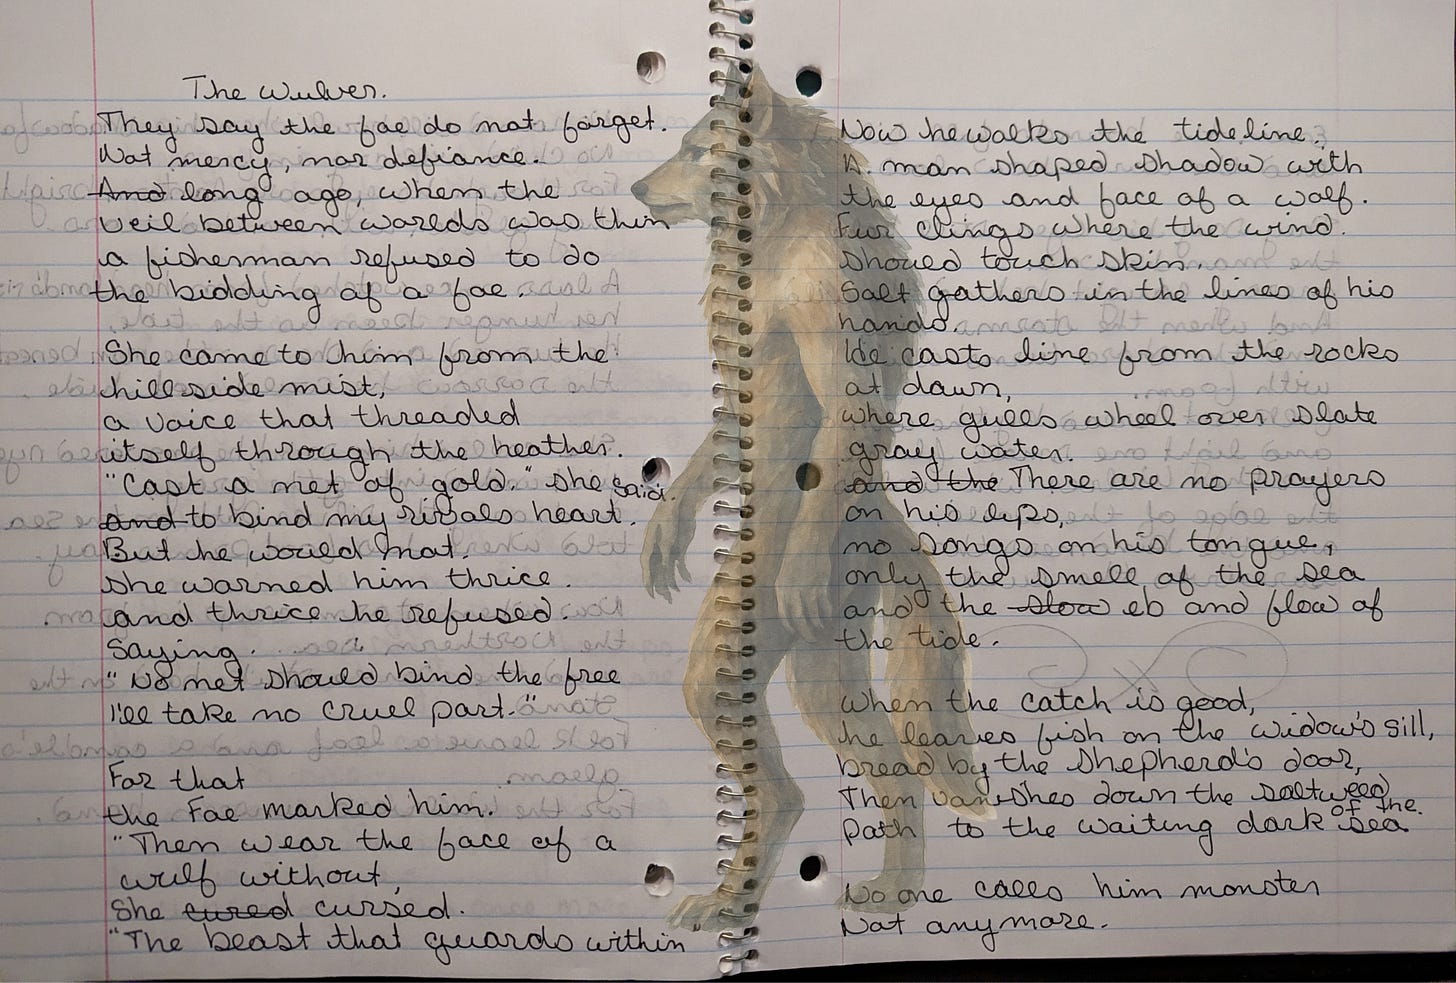 The Wulver.
They say the fae do not forget.
Not mercy, nor defiance.
And long ago, when the
veil between worlds was thin
a fisherman refused to do
the bidding of a fae.
She came to him from the
hillside mist,
a voice that threaded
itself through the heather.
"Cast a net of gold." she said.
and to bind my rivals heart.
But he would not.
She warned him thrice.
and thrice he refused.
Saying.
"No net should bind the free
I'll take no cruel part."
For that
the Fae marked him.
"Then wear the face of a
wulf without,
She cured cursed.
"The beast that guards within
Now he walks the tideline.
A man shaped shadow with
the eyes and face of a wolf.
Fur clings where the wind.
should touch skin.
Salt gathers in the lines of his
hands.
He casts line from the rocks
at dawn,
where gulls wheel over slate
gray water.
and the There are no prayers
on his lips,
no songs on his tongue,
only the smell of the sea
and the slow eb and flow of
the tide.
When the catch is good,
he leaves fish on the widow's sill,
bread by the shepherd's door,
Then vanishes down the saltweed
path to the waiting dark of the sea
No one calls him monster
Not anymore.